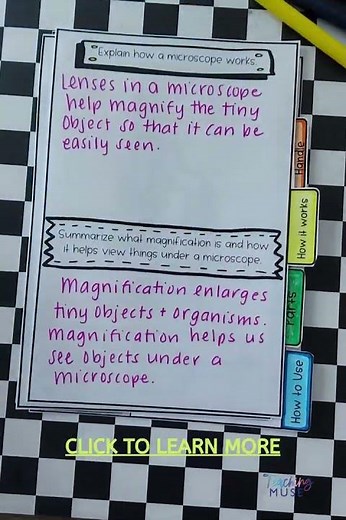 Explain how a microscope works.
Lenses in a microscope
help magnify the tiny
object so that it can be
easily seen.
Handle
How it works
Summarize what magnification is and how
it helps view things under a microscope.
Parts
Magnification enlarges
tiny objects + organisms.
Magnification helps us
see objects under a
microscope.
How to Use
CLICK TO LEARN MORE
Teaching
MUSE